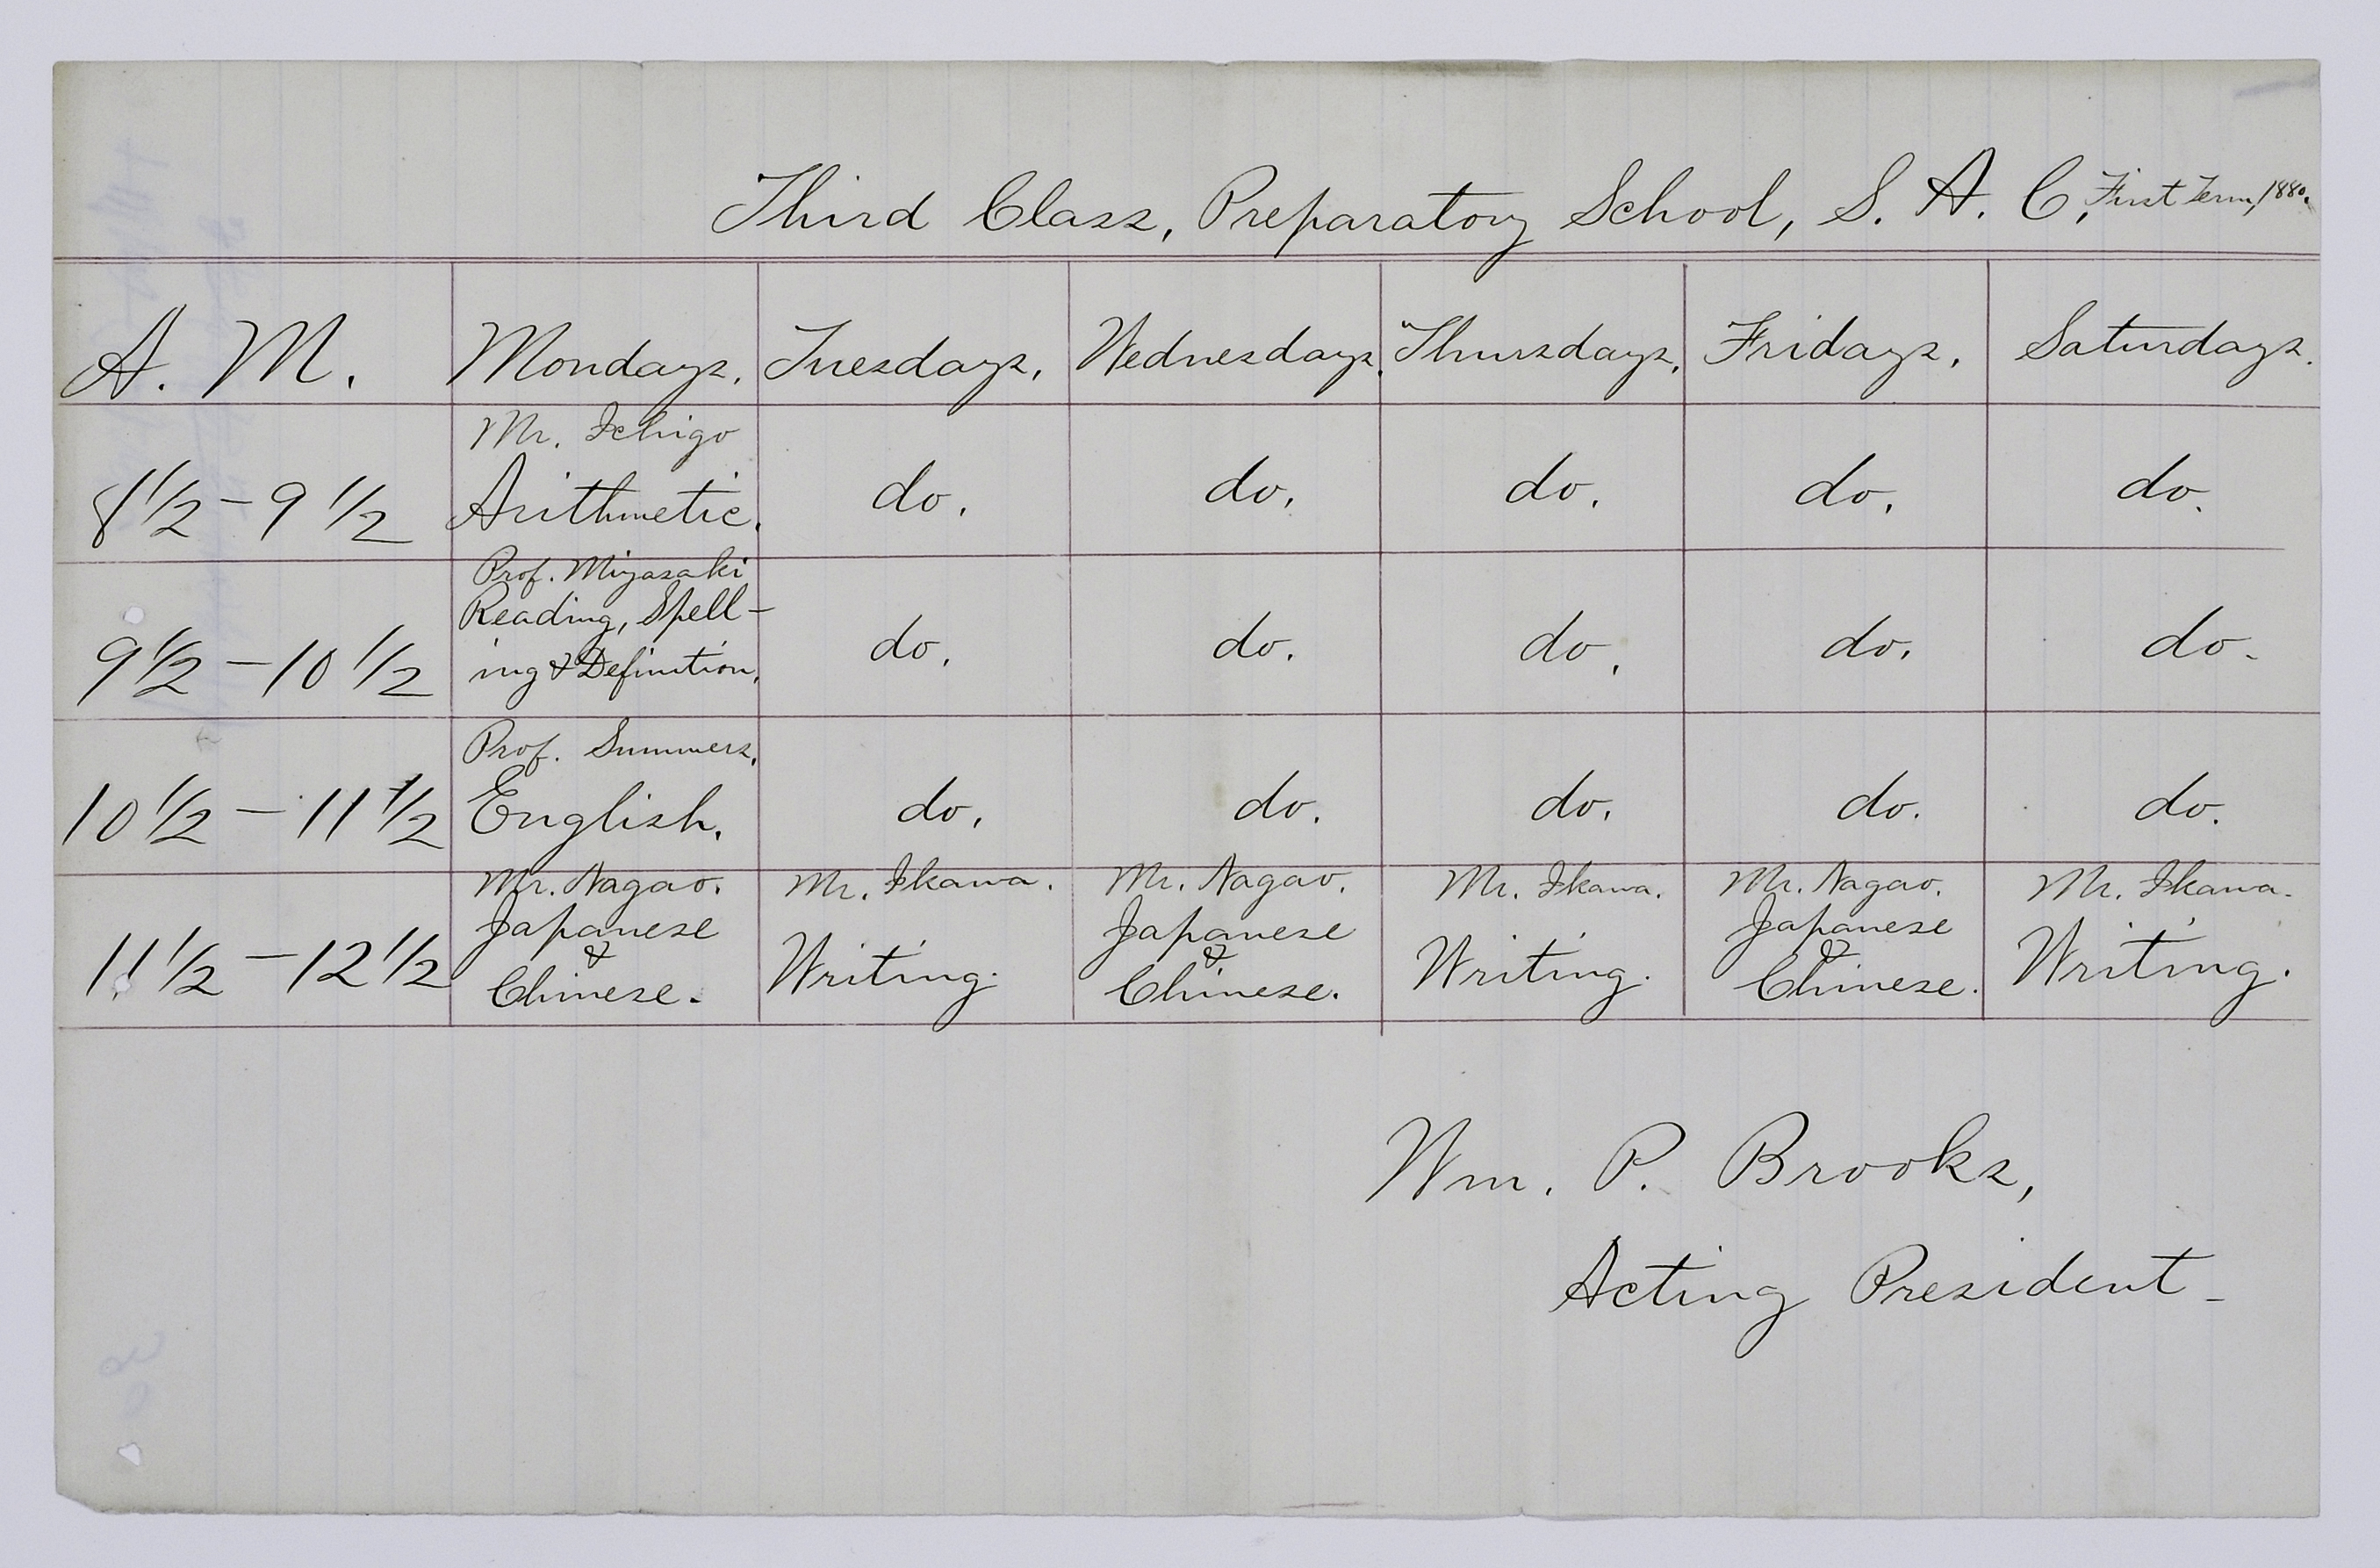 Third Class, Preparatory School, S. A. C., First Term, 1880.
A. M. Mondays. Tuesdays. Wednesdays. Thursdays. Fridays. Saturdays.
Mr. Ichigo
8 1/2 - 9 1/2 Arithmetic. do. do. do. do. do.
Prof. Miyasaki
Reading, Spell-
9 1/2 - 10 1/2 ing & Definition. do. do. do. do. do.
Prof. Summers.
10 1/2 - 11 1/2 English. do. do. do. do. do.
Mr. Nagao. Mr. Ikawa. Mr. Nagao. Mr. Ikawa. Mr. Nagao. Mr. Ikawa.
11 1/2 - 12 1/2 Japanese & Chinese. Writing. Japanese & Chinese. Writing. Japanese & Chinese. Writing.
Wm. P. Brooks,
Acting President.